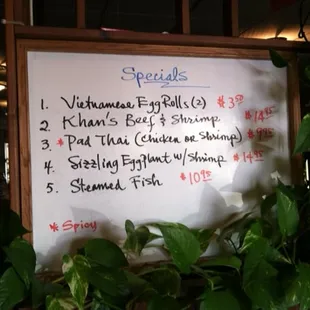 Specials
1. Vietnamese Egg Rolls (2) $3.50
2. Khan's Beef & Shrimp $14.95
3. *Pad Thai (chicken or Shrimp) $9.95
4. Sizzling Eggplant w/Shrimp $14.95
5. Steamed Fish $10.95
* Spicy